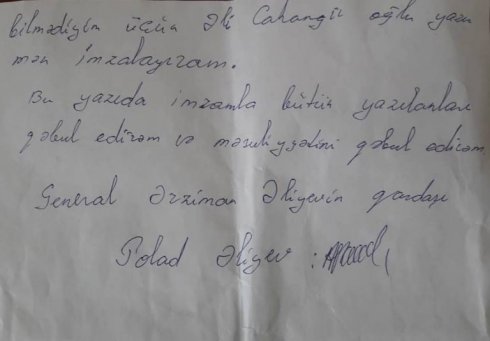 bilmədiyim üçün Əli Cahangir oğlu yazır
mən imzalayıram.
Bu yazıda imzamla bütün yazılanları
qəbul edirəm və məsuliyyətini qəbul edirəm
General Ərziman Əliyevin qardaşı
Polad Əliyev :